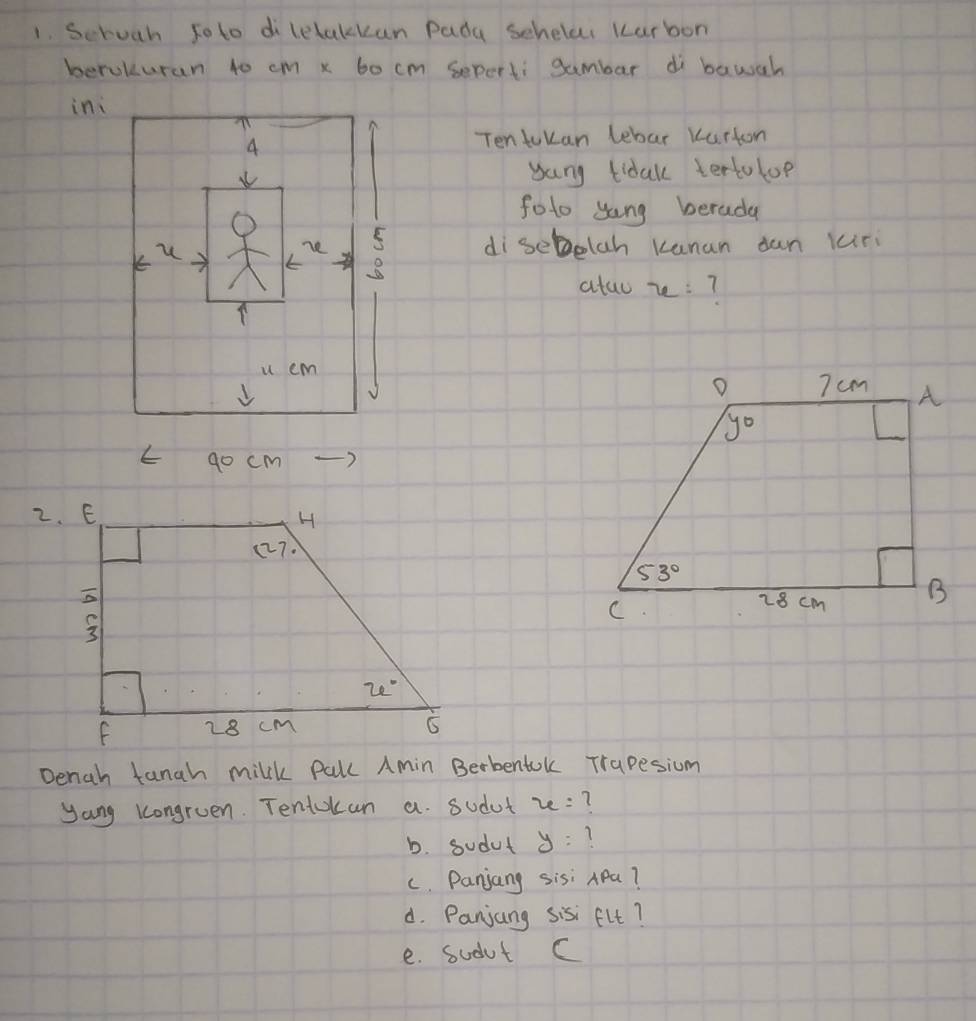 1. Sebuah foto diletakkan pada sehelai karbon
berukuran 40 cm x 60 cm seperti gambar di bawah
ini
4
x
x
60 cm
u cm
90 cm
Tentukan lebar karton
yang tidak tertutup
foto yang berada
disebelah kanan dan kiri
atau x = ?
D 7 cm A
y°
53°
C 28 cm B
2. E H
127°
cm
x°
F 28 cm G
Denah tanah milik Pak Amin Berbentuk Trapesium
yang kongruen. Tentukan a. sudut x = ?
b. sudut y = ?
c. Panjang sisi
d. Panjang sisi
e. sudut C